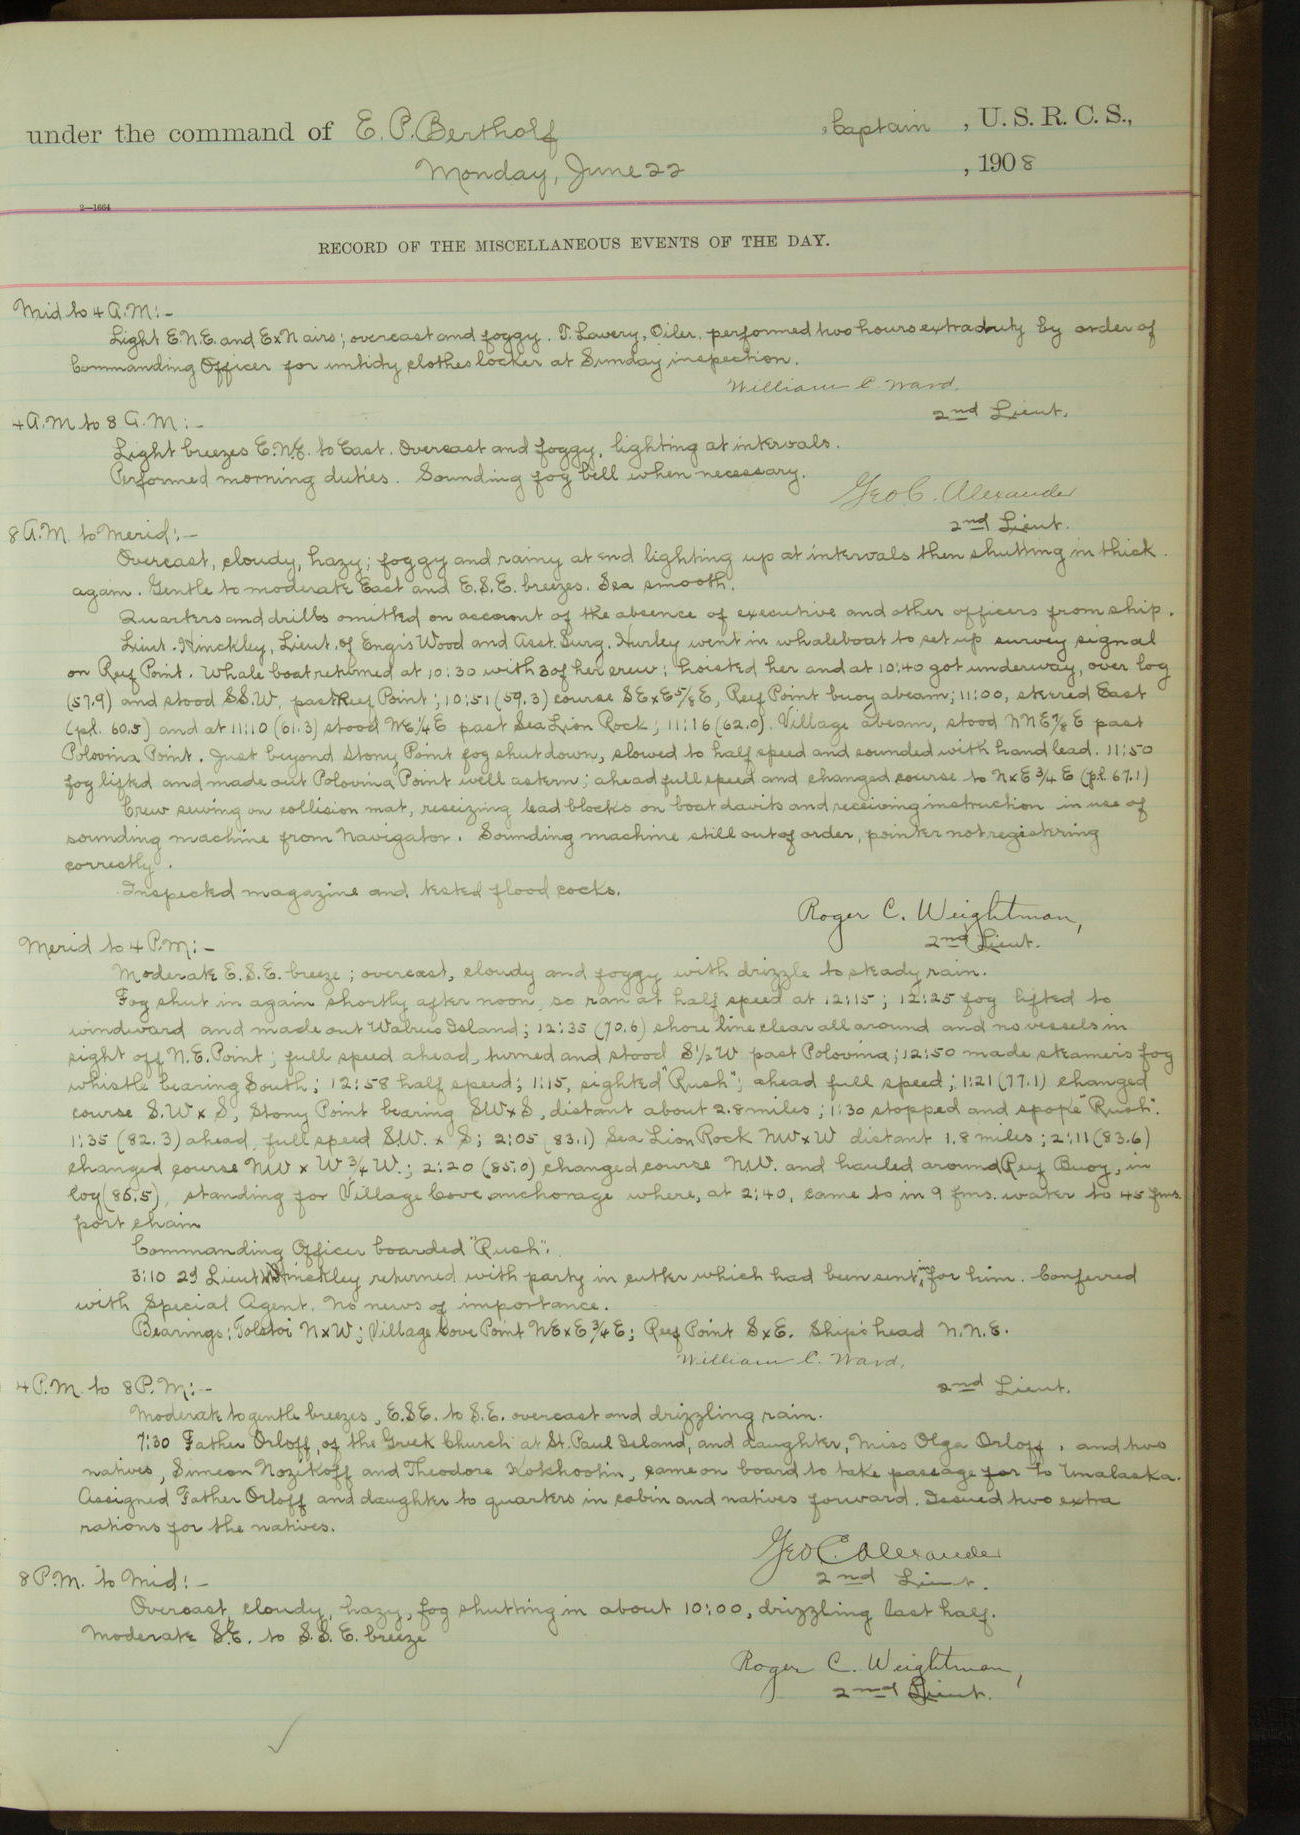 under the command of E. P. Bertholf , Captain , U. S. R. C. S.,
Monday, June 22 , 1908
2—1664
RECORD OF THE MISCELLANEOUS EVENTS OF THE DAY.
Mid to 4 A.M:-
Light E.N.E. and ExN airs; overcast and foggy. T. Lavery, Oiler, performed two hours extra duty by order of
Commanding Officer for untidy clothes locker at Sunday inspection.
William C. Ward.
2nd Lieut.
4 A.M to 8 A.M:-
Light breezes E.N.E. to East. Overcast and foggy, lighting at intervals.
Performed morning duties. Sounding fog bell when necessary.
Geo C. Alexander
2nd Lieut.
8 A.M. to Merid:-
Overcast, cloudy, hazy; foggy and rainy at end lighting up at intervals then shutting in thick
again. Gentle to moderate East and E.S.E. breezes. Sea smooth.
Quarters and drills omitted on account of the absence of executive and other officers from ship.
Lieut. Hinckley, Lieut. of Engrs Wood and Asst. Surg. Hurley went in whaleboat to set up survey signal
on Reef Point. Whale boat returned at 10:30 with 3 of her crew; hoisted her and at 10:40 got underway, over log
(57.9) and stood S.S.W, past Reef Point; 10:51 (59.3) course SExE5/8E, Reef Point buoy abeam; 11:00, steered East
(p.l. 60.5) and at 11:10 (61.3) stood NE1/4E past Sea Lion Rock; 11:16 (62.0). Village abeam, stood NNE7/8E past
Polovina Point. Just beyond Stony Point fog shut down, slowed to half speed and sounded with hand lead. 11:50
fog lifted and made out Polovina Point well astern; ahead full speed and changed course to NxE3/4E (p.l. 67.1)
Crew sewing on collision mat, reseizing lead blocks on boat davits and receiving instruction in use of
sounding machine from Navigator. Sounding machine still out of order, pointer not registering
correctly.
Inspected magazine and tested flood cocks.
Roger C. Weightman,
2nd Lieut.
Merid to 4 P.M:-
Moderate E.S.E. breeze; overcast, cloudy and foggy with drizzle to steady rain.
Fog shut in again shortly after noon, so ran at half speed at 12:15; 12:25 fog lifted to
windward and made out Walrus Island; 12:35 (70.6) shore line clear all around and no vessels in
sight off N.E. Point; full speed ahead, turned and stood S1/2W past Polovina; 12:50 made steamer's fog
whistle bearing South; 12:58 half speed; 1:15, sighted "Rush"; ahead full speed; 1:21 (77.1) changed
course S.W x S, Stony Point bearing SWxS, distant about 2.8 miles; 1:30 stopped and spoke "Rush".
1:35 (82.3) ahead full speed S.W. x S; 2:05 (83.1) Sea Lion Rock NWxW distant 1.8 miles; 2:11 (83.6)
changed course NW x W3/4W.; 2:20 (85.0) changed course NW. and hauled around Reef Buoy, in
log (86.5), standing for Village Cove anchorage where, at 2:40, came to in 9 fms. water to 45 fms.
port chain
Commanding Officer boarded "Rush".
3:10 2d Lieut Hinckley returned with party in cutter which had been sent in for him. Conferred
with Special Agent. No news of importance.
Bearings: Tolstoi NxW; Village Cove Point NExE3/4E; Reef Point SxE. Ship's head N.N.E.
William C. Ward,
2nd Lieut.
4 P.M. to 8 P.M:-
Moderate to gentle breezes, E.S.E. to S.E. overcast and drizzling rain.
7:30 Father Orloff, of the Greek Church at St. Paul Island, and daughter, Miss Olga Orloff, and two
natives, Simeon Nozekoff and Theodore Kokhootin, came on board to take passage for to Unalaska.
Assigned Father Orloff and daughter to quarters in cabin and natives forward. Issued two extra
rations for the natives.
Geo C. Alexander
2nd Lieut.
8 P.M. to Mid:-
Overcast, cloudy, hazy, fog shutting in about 10:00, drizzling last half.
Moderate S.E. to S.S.E. breeze
Roger C. Weightman,
2nd Lieut.